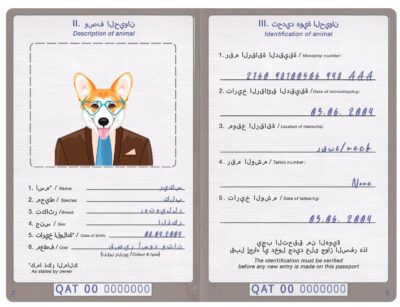 II. وصف الحيوان
Description of animal
1. اسم* / Name:
2. محيط / Species:
كلب
3. تكاثر / Breed:
روتويلر
4. جنس / Sex:
5. تاريخ الولادة* / Date of birth
08.09.2009
6. معطف / Coat
قصير أسود وتان
/ Colour & type)
As stated by owner
2
QAT 00 0000000
III. تحديد هوية الحيوان
Identification of animal
1. رقم الرقاقة الدقيقة / Microchip number:
AAA
2. تاريخ الرقائق الدقيقة / Date of microchipping:
03.06.2009
3. موقع الرقاقة / Location of microchip:
رقبة/neck
4. رقم الوشم / Tattoo number:
None
5. تاريخ الوشم / Date of tattooing:
03.06.2009
يجب التحقق من الهوية
قبل إجراء أي دخول جديد على جواز السفر هذا
The identification must be verified
before any new entry is made on this passport
QAT 00 0000000
3